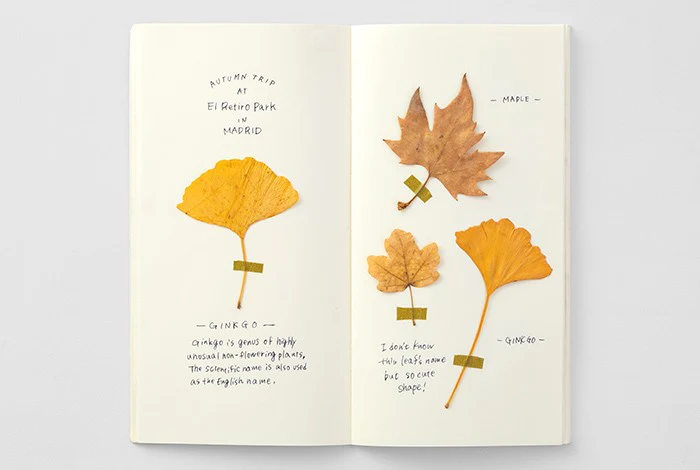 AUTUMN TRIP
AT
El Retiro Park
IN
MADRID
— GINKGO —
Ginkgo is genus of highly
unusual non-flowering plants,
The scientific name is also used
as the English name.
— MAPLE —
I don't know
this leaf's name
but so cute
shape!
- GINKGO -